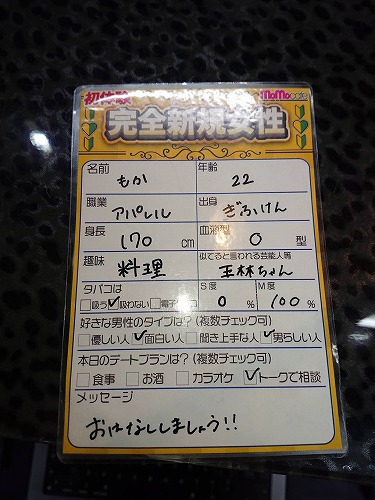 初体験 MoMo cafe
完全新規女性
名前 もか 年齢 22
職業 アパレル 出身 ぎふけん
身長 170 cm 血液型 O 型
趣味 料理 似てると言われる芸能人等 王林ちゃん
タバコは S度 M度
□吸う ☑吸わない □電子 0 % 100 %
好きな男性のタイプは?(複数チェック可)
□優しい人 ☑面白い人 □聞き上手な人 ☑男らしい人
本日のデートプランは?(複数チェック可)
□食事 □お酒 □カラオケ ☑トークで相談
メッセージ
おはなししましょう!!